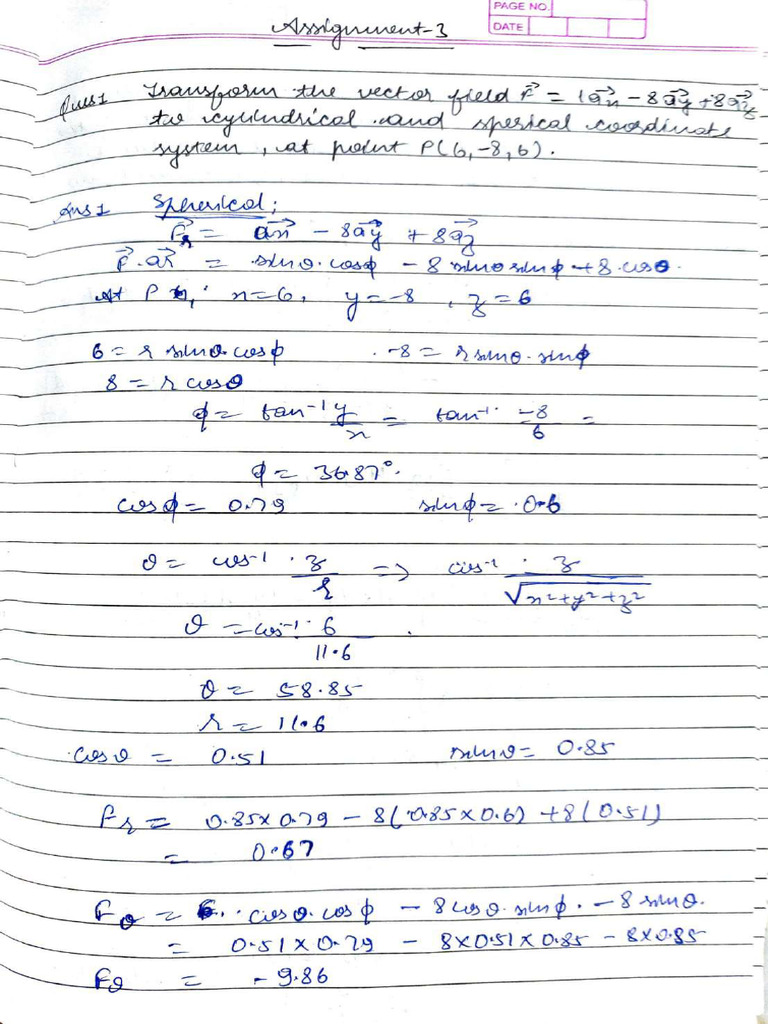 PAGE NO.
DATE
Assignment-3
Ques1 Transform the vector field F⃗ = 1a⃗x - 8a⃗y + 8a⃗z
to cylindrical and sperical coordinate
system, at point P(6,-8,6).
Ans1 Spherical;
F⃗r = a⃗x - 8a⃗y + 8a⃗z
F⃗.a⃗r = sinθ.cosϕ - 8 sinθ sinϕ + 8.cosθ.
At P x=6, y=-8, z=6
6 = r sinθ.cosϕ -8 = r sinθ.sinϕ
8 = r cosθ
ϕ = tan⁻¹ y/x = tan⁻¹ -8/6 =
ϕ = 36.87°.
cosϕ = 0.79 sinϕ = 0.6
θ = cos⁻¹ z/r => cos⁻¹ z/√x²+y²+z²
θ = cos⁻¹ 6/11.6
θ = 58.85
r = 11.6
cosθ = 0.51 sinθ = 0.85
Fr = 0.85×0.79 - 8(0.85×0.6) + 8(0.51)
= 0.67
Fθ = cosθ.cosϕ - 8cosθ.sinϕ. - 8 sinθ.
= 0.51×0.79 - 8×0.51×0.85 - 8×0.85
Fθ = -9.86